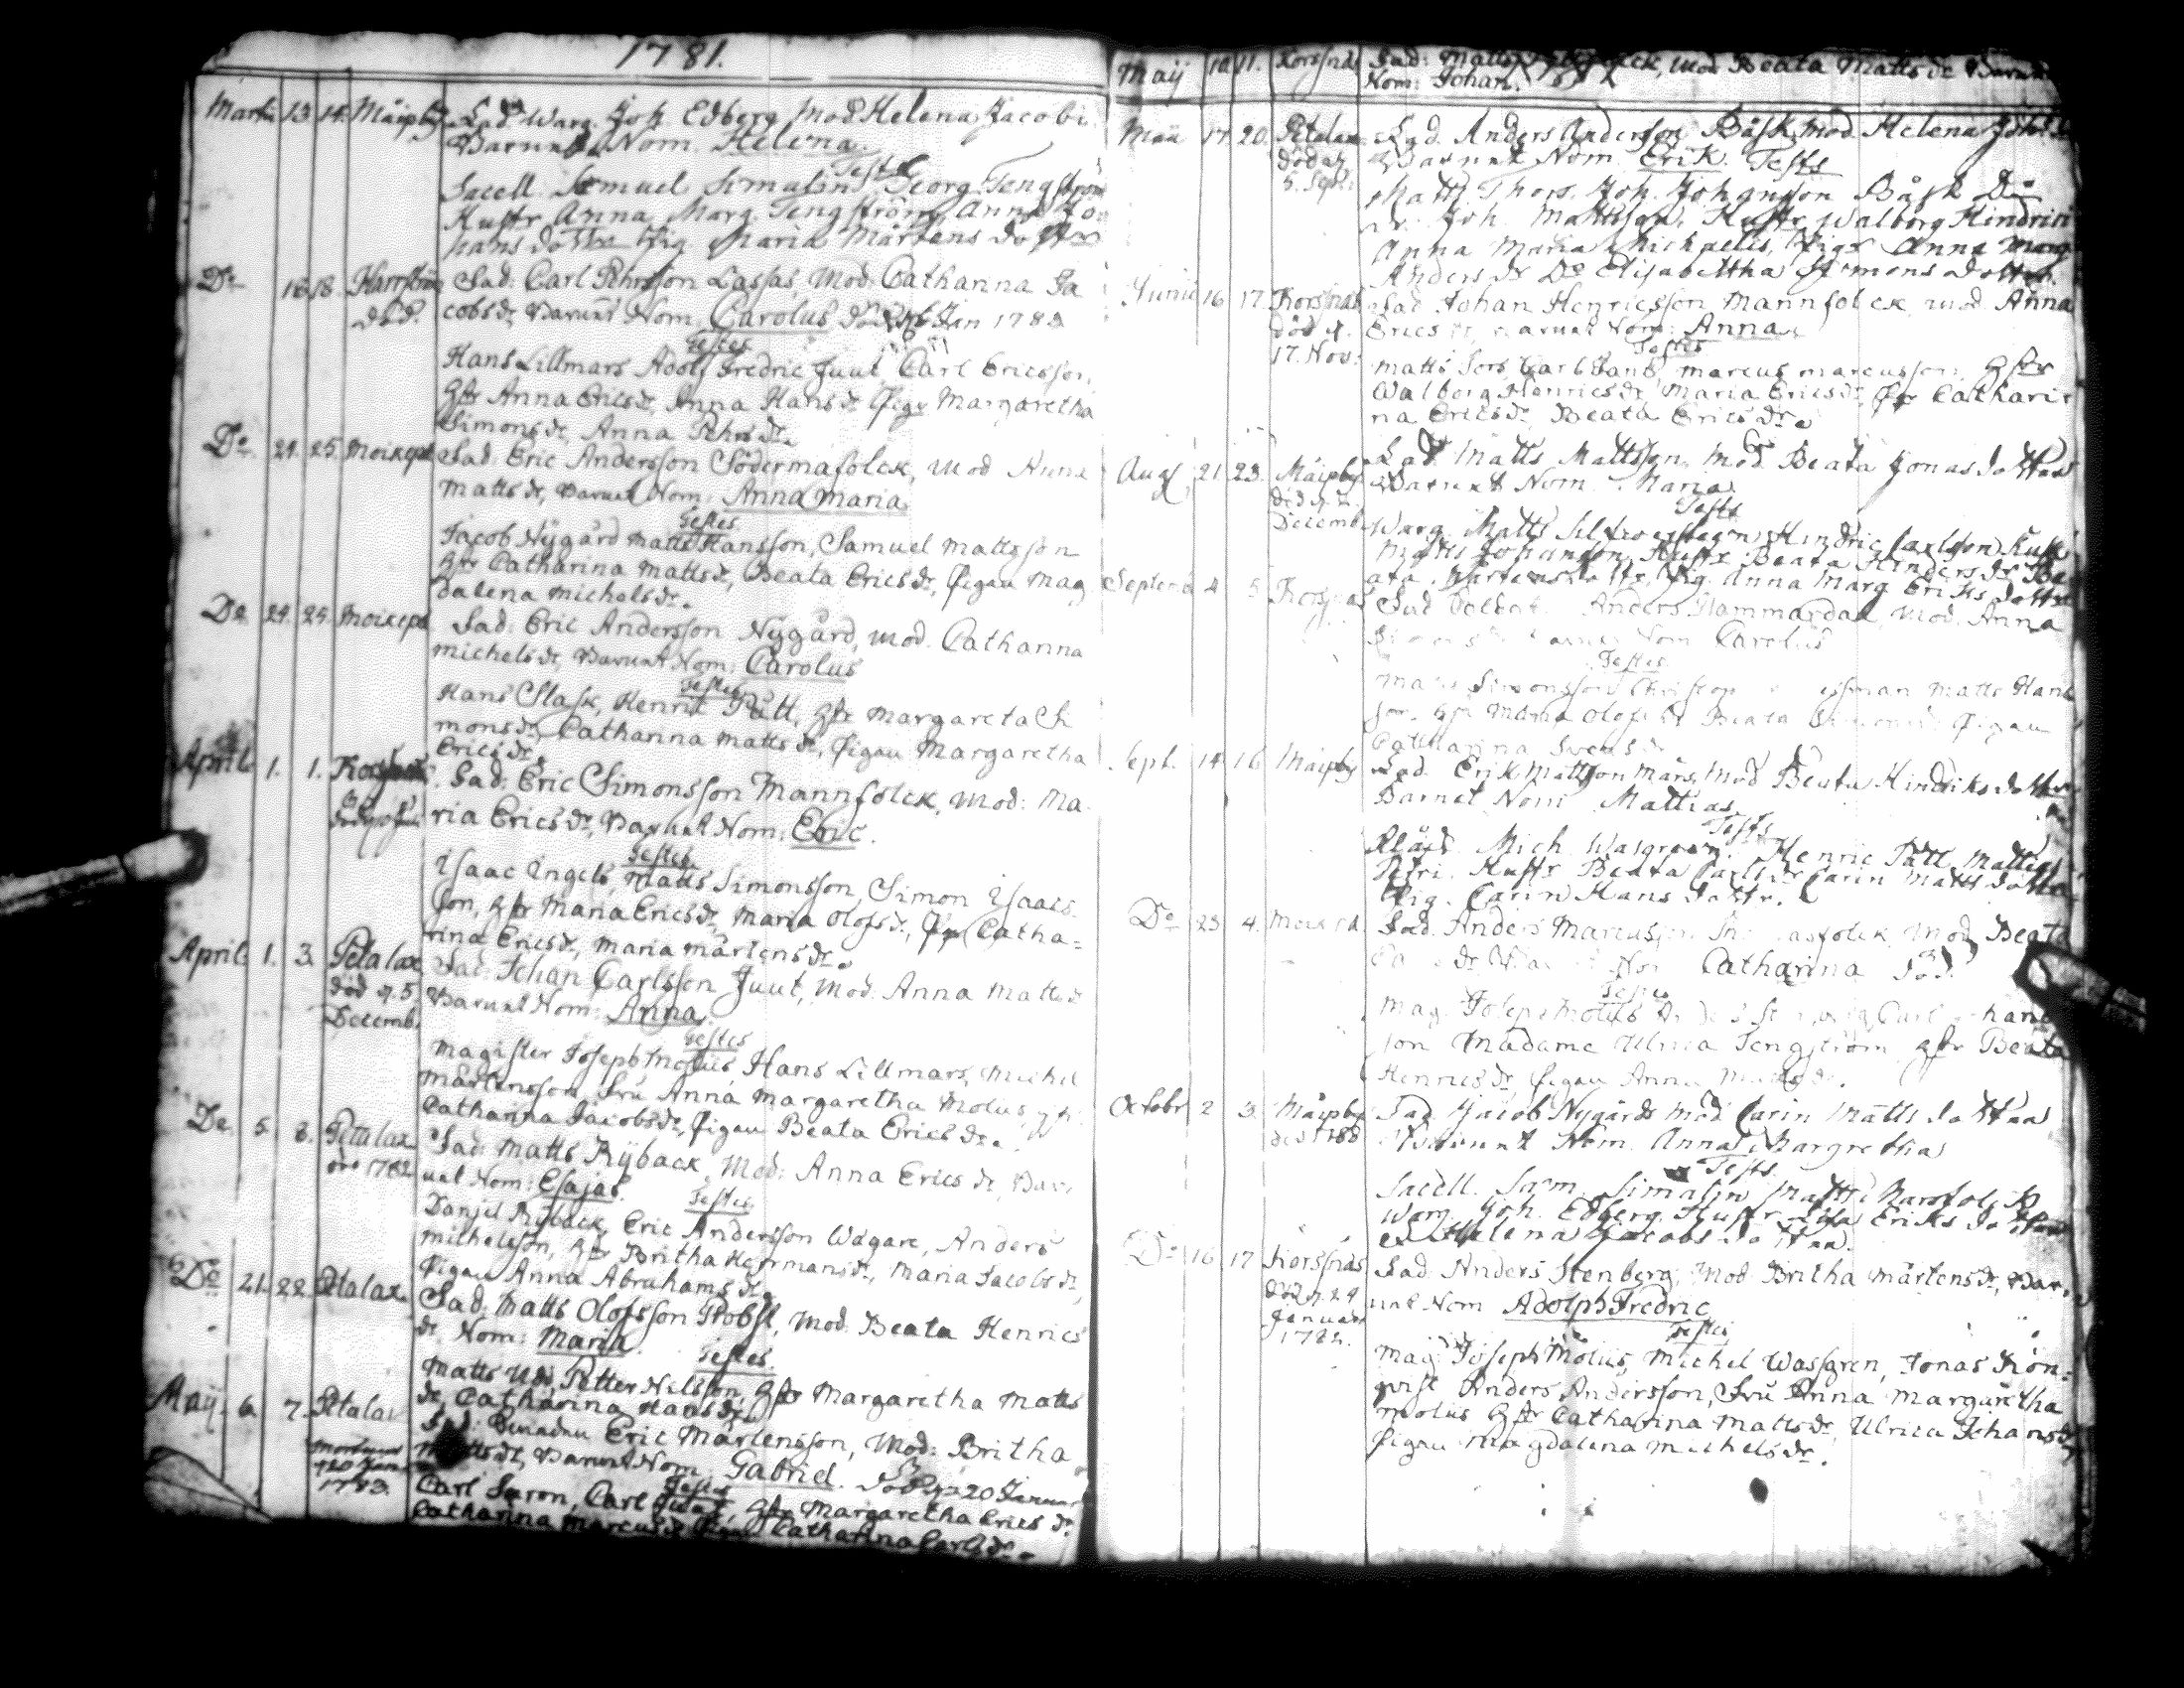 1781.
Marti 13 14 Måipby Fad. Warg. Joh. Edberg Mod Helena Jacobi
Barnet Nom. Helena.
Testes
Sacell. Samuel Simalin Georg Tengström
Hustr Anna Marg. Tengström, Anna Jo
hans dotter Pig. Maria Mårtens dotter
Do 16 18. Harrström Fad: Carl Pehrsson Lassas, Mod: Catharina Ja
död. cobs dr, Barnet Nom: Carolus död Jan 1783
Testes
Hans Lillmars Adolf Fredric Juut, Carl Ericsson,
Hustr Anna Erics dr, Anna Hans dr Pigor Margaretha
Simons dr, Anna Pehrs dr.
Do. 24. 25. Moikepä Fad: Eric Andersson Södermafolck, Mod Anna
Matts dr, Barnet Nom: Anna Maria
Testes
Jacob Nygård Matts Hansson, Samuel Mattsson
Hustr Catharina Matts dr, Beata Erics dr, Pigan Mag
dalena Michels dr.
Do. 24. 25. Moikepä Fad: Eric Andersson Nygård, Mod. Catharina
Michels dr, Barnet Nom: Carolus
Testes
Hans Slask, Henric Pått, Hustr Margareta Si
mons dr, Catharina Matts dr, Pigan Margaretha
Erics dr.
April 1. 1. Korsnäs. Fad: Eric Simonsson Mannfolck, Mod: Ma
ria Erics dr, Barnet Nom: Eric.
Testes.
Isaac Ingels, Matts Simonsson, Simon Isaacs
son, Hustr Maria Erics dr, Maria Olofs dr, Pigor Catha=
rina Erics dr, Maria Mårtens dr.
April 1. 3. Petalax Fad: Johan Carlsson Juut, Mod: Anna Matts dr
död d. 5. Barnet Nom: Anna.
Decemb. Testes
Magister Joseph Molius, Hans Lillmars, Michel
Mårtensson, Fru Anna Margaretha Molius, Hustr
Catharina Jacobs dr, Pigan Beata Erics dr.
Do. 5. 8. Petalax Fad: Matts Ryback, Mod: Anna Erics dr, Bar
1782 net Nom: Esajas.
Testes
Danjel Ryback, Eric Andersson Wägare, Anders
Michelsson, Hustr Britha Herrmans dr, Maria Jacobs dr,
Pigan Anna Abrahams dr.
Do 21. 22. Petalax Fad: Matts Olofsson Probst, Mod: Beata Henrics
dr, Nom: Maria.
Testes.
Matts Petter Nilsson, Hustr Margaretha Matts
dr, Catharina Hans dr
Maij 6. 7. Petalax Fad: Eric Mårtensson, Mod: Britha
Mortuus Matts dr, Barnet Nom: Gabriel. Död d. 20 Januar
20 Jan Testes
1783. Carl Saron, Carl Juut, Hustr Margaretha Erics dr
Catharina Marcus dr Pigan Catharina Carls dr.
Maij 10 11. Korsnäs Fad: Matts Mod Beata Matts dr Barnet
Nom: Johan.
Maii 17. 20. Petalax Fad. Anders Anderson Båsk Mod. Helena Joh
död d. Barnet Nom. Erik. Testes
5. Sept. Matts Thors. Joh. Johansson Båsk Do
Joh. Mattsson, Hustr Walborg Hindrici
Anna Maria Michaelis, Pigr Anna Marg
Anders dr Do Elisabettha Simons dotter.
Junii 16. 17. Korsnäs Fad Johan Henricsson Mannfolck Mod Anna
död d. Erics dr, Barnet Nom: Anna.
17. Nov. Testes
Matts Jors, Carl Sand, Marcus Marcusson, Hustr
Walborg Henrics dr, Maria Erics dr, Pigor Cathari
na Erics dr, Beata Erics dr.
Aug 21. 23. Måipby Fad. Matts Mattsson, Mod. Beata Jonas dotter
Barnet Nom. Maria
Decemb Testes
Warg. Matts Hindric Carlsson
Matts Johansson, Hustr Beata Hinders dr Be
ata Mårtens dottr, Pig. Anna Marg Eriks dottr
Septemb 4. 5 Korsnäs Fad Soldat Anders Hammardal, Mod. Anna
Nom Carolus
Testes
Matts Simonsson Matts Hans
son. Hustr Maria Olofs dr Beata Simons dr Pigan
Catharina Svens dr
Sept. 14 16 Måipby Fad. Erik Mattson Mårs, Mod Beata Hindriks dotter
Barnet Nom Mattias.
Testes
Mich. Wasgreen. Henric Pått Mattias
Petri. Hustr Beata Carls dr Carin Matts dotter
Pig. Carin Hans dottr.
Do 23 4. Fad. Anders Marcusson Mod. Beata
Nom Catharina död.
Testes
Mag. Joseph Molius Carl
son Madame Ulrica Tengström Hustr Beata
Henrics dr, Pigan Anna Matts dr.
Octobr 2 3. Måipby Fad. Jacob Nygårds Mod Carin Matts dotter
Barnet Nom. Anna Margretha
Testes.
Sacell. Sam. Simalin Matts
Warg. Joh. Edberg. Hustr Lisa Eriks dotter
et Helena Jacobs dotter.
Do 16 17 Korsnäs Fad: Anders Stenberg, Mod: Britha Mårtens dr, Bar
död d. 24 net Nom Adolph Fredric
Januar Testes
1782. Mag. Joseph Molius, Michel Wassgren, Jonas Kron=
qvist, Anders Andersson, Fru Anna Margaretha
Molius Hustr Catharina Matts dr, Ulrica Johans dr
Pigan Magdalena Michels dr.